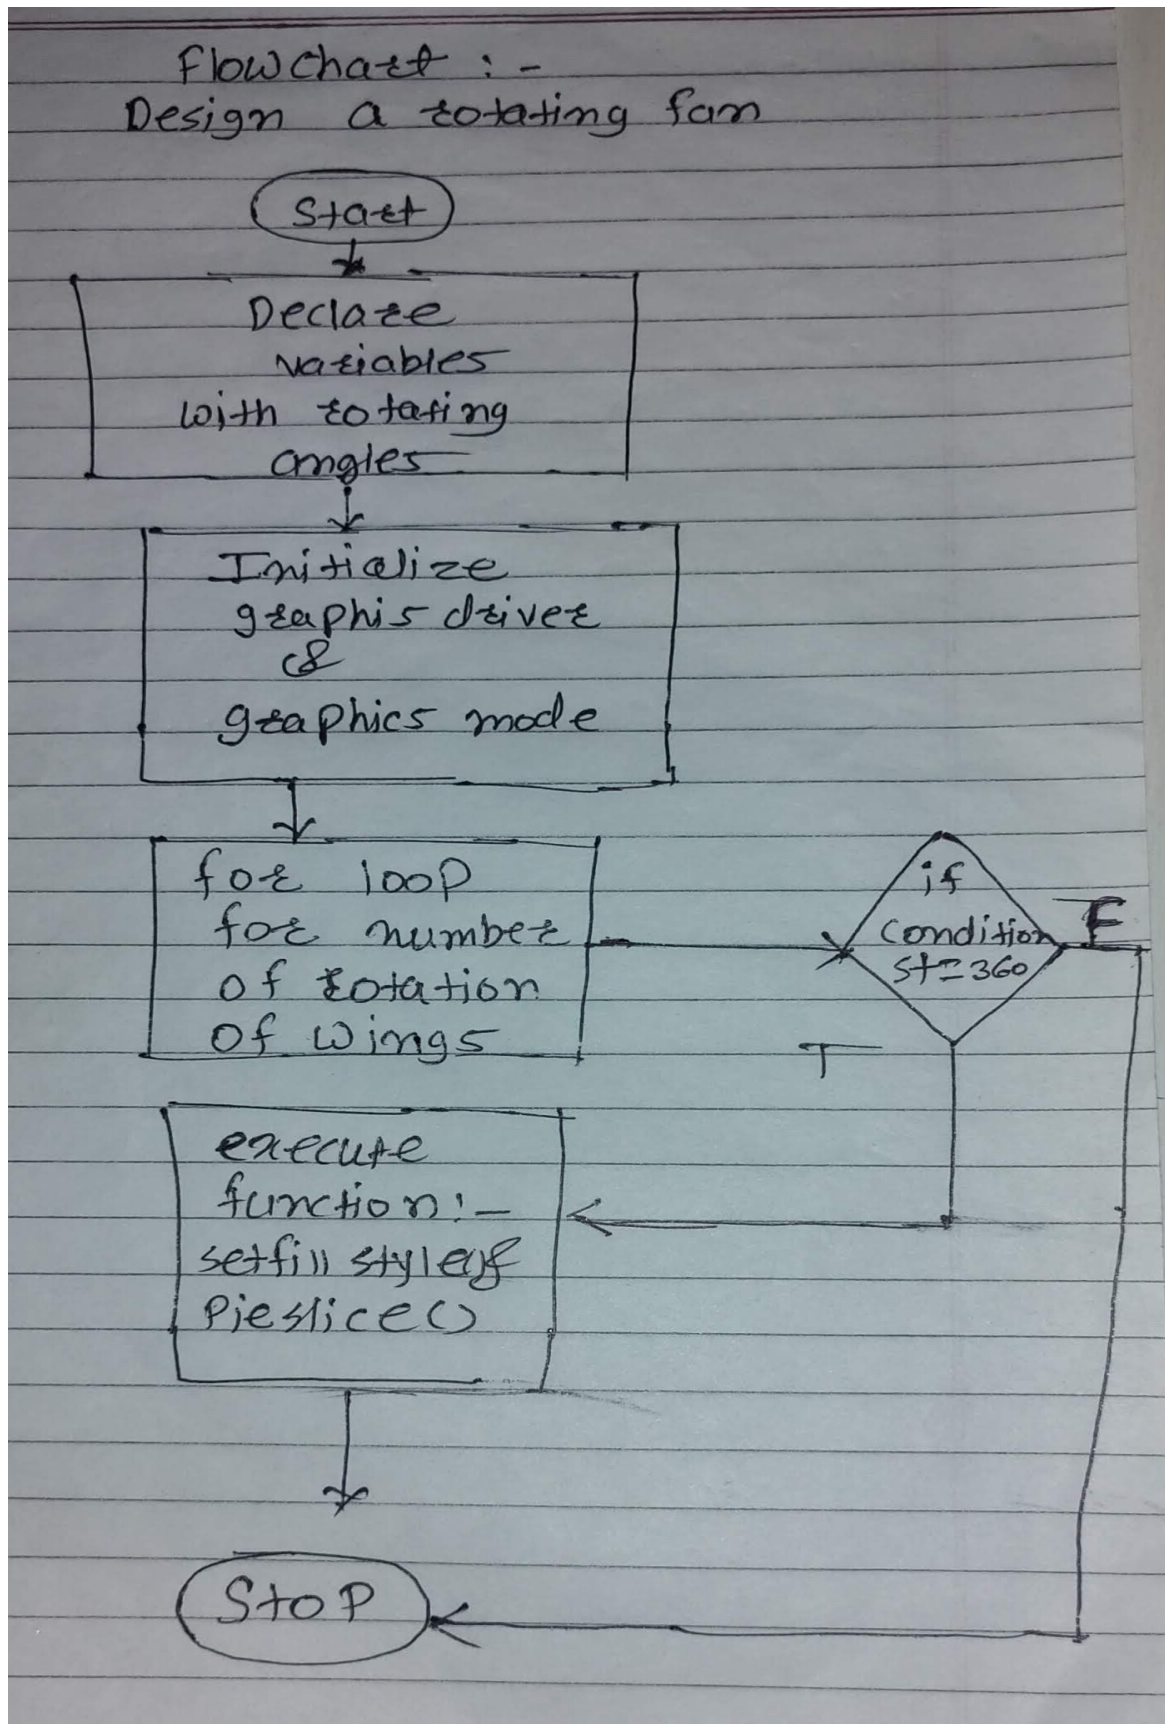 Flowchart : -
Design a rotating fan
Start
Declare
variables
with rotating
angles
Initialize
graphis driver
&
graphics mode
for loop
for number
of rotation
of wings
if
condition
st=360
F
T
execute
function:-
setfill style
Pieslice()
Stop